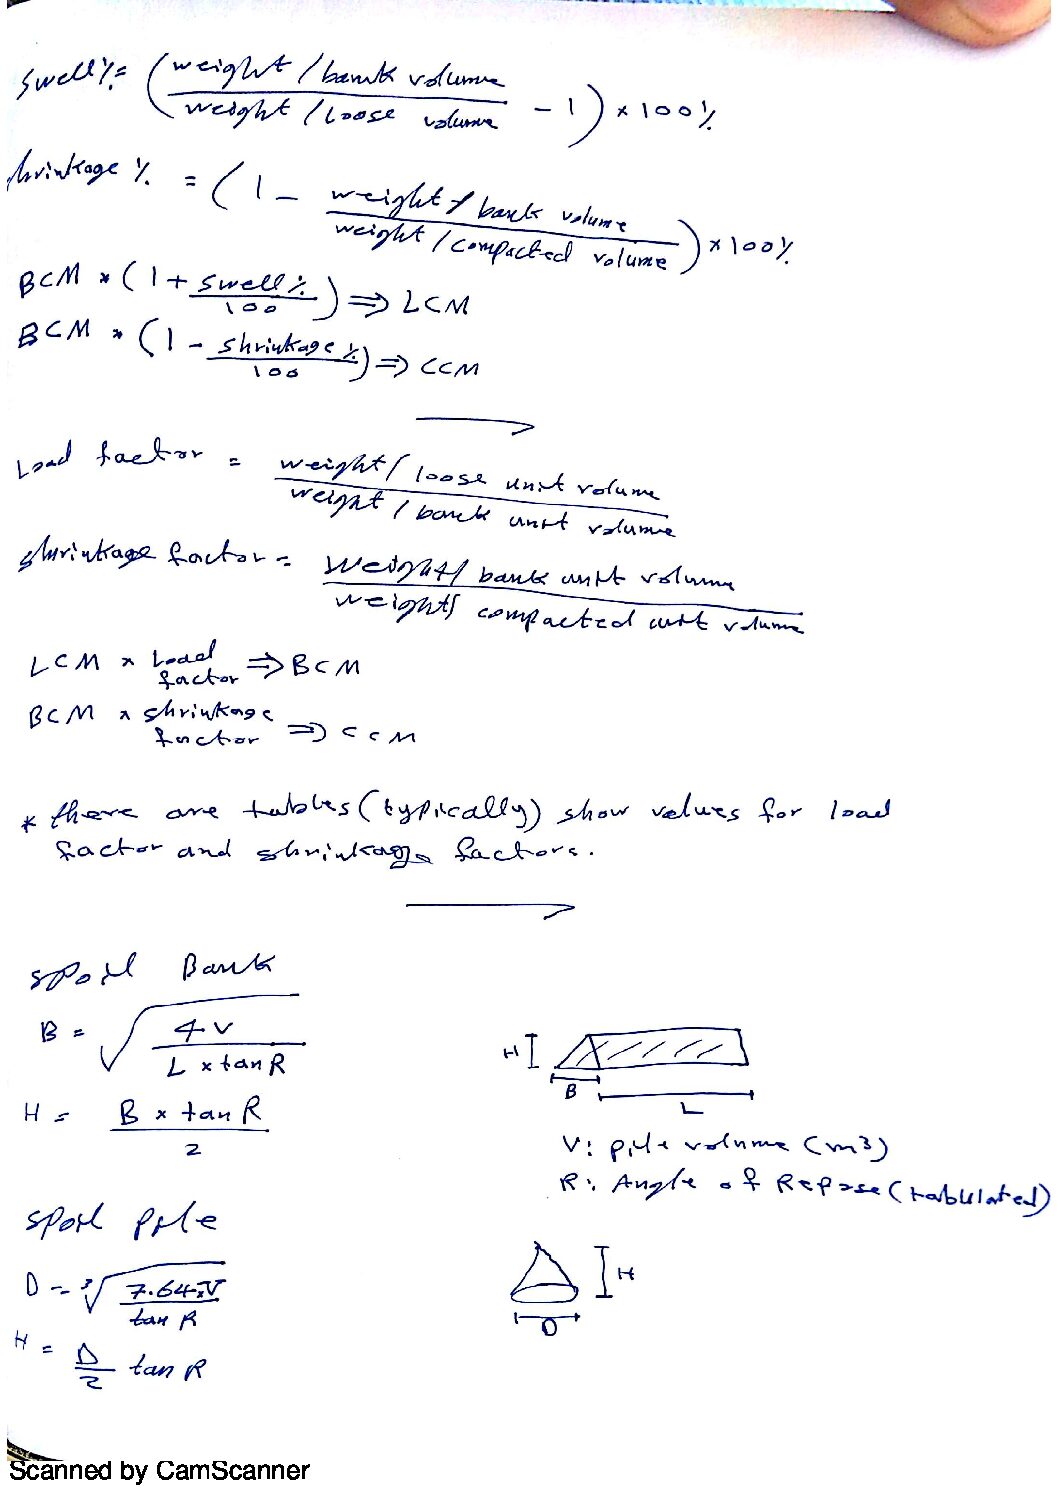 Swell % = ( weight / bank volume / weight / loose volume - 1 ) × 100%
shrinkage % = ( 1 - weight / bank volume / weight / compacted volume ) × 100%
BCM * ( 1 + swell % / 100 ) ⇒ LCM
BCM * ( 1 - shrinkage % / 100 ) ⇒ CCM
Load factor = weight / loose unit volume / weight / bank unit volume
shrinkage factor = weight / bank unit volume / weight / compacted unit volume
LCM × Load factor ⇒ BCM
BCM × shrinkage factor ⇒ CCM
* there are tables (typically) show values for load
factor and shrinkage factors.
spoil Bank
B = √ 4V / L × tan R
H = B × tan R / 2
H
B
L
V: pile volume (m3)
R: Angle of Repose (tabulated)
spoil pile
D = 3√ 7.64×V / tan R
H = D / 2 tan R
H
D
Scanned by CamScanner